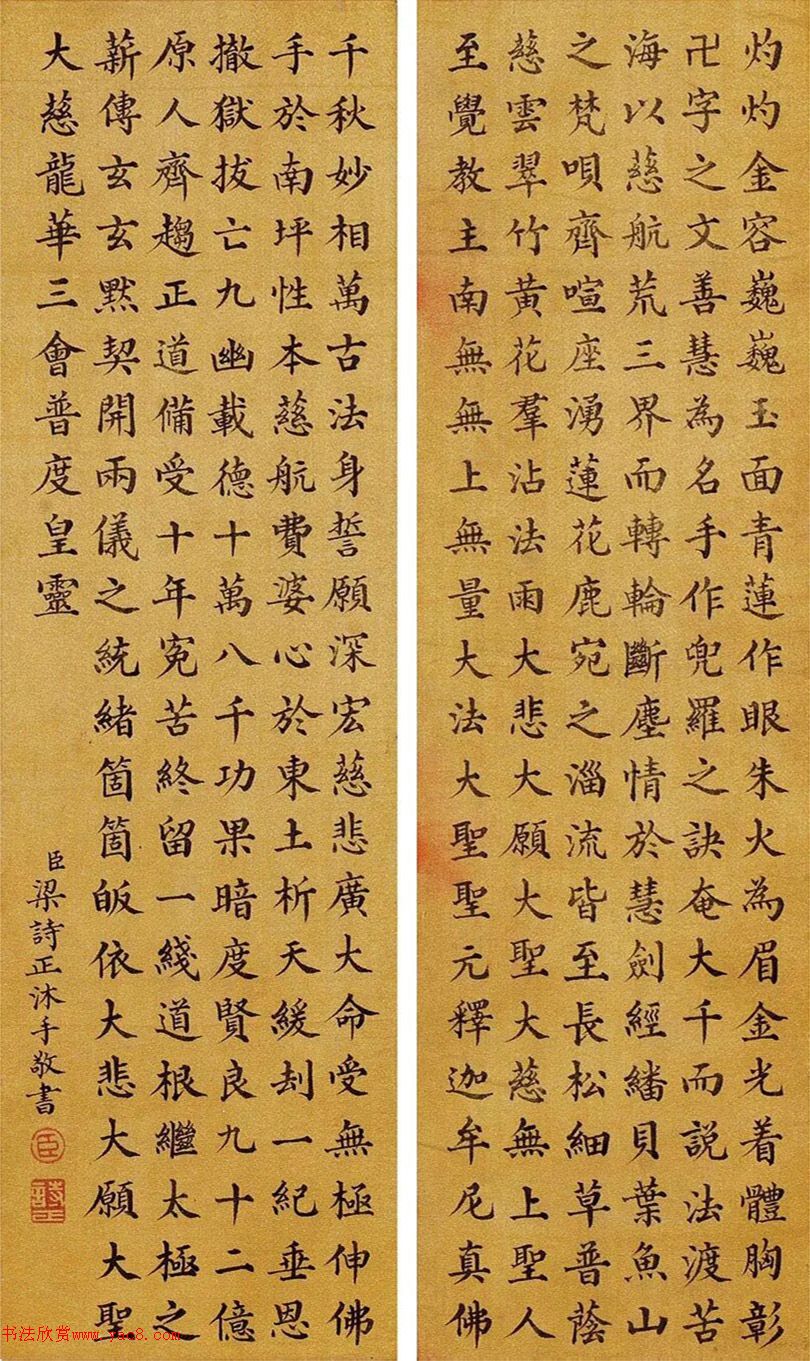 灼灼金容巍巍玉面青蓮作眼朱火為眉金光着體胸彰
卍字之文善慧為名手作兜羅之訣奄大千而説法渡苦
海以慈航荒三界而轉輪斷塵情於慧劍經繙貝葉魚山
之梵唄齊喧座湧蓮花鹿宛之淄流皆至長松細草普蔭
慈雲翠竹黃花羣沾法雨大悲大願大聖大慈無上聖人
至覺教主南無無上無量大法大聖聖元釋迦牟尼真佛
千秋妙相萬古法身誓願深宏慈悲廣大命受無極伸佛
手於南坪性本慈航費婆心於東土析天緩刦一紀垂恩
撤獄拔亡九幽載德十萬八千功果暗度賢良九十二億
原人齊趨正道備受十年寃苦終留一綫道根繼太極之
薪傳玄玄默契開兩儀之統緒箇箇皈依大悲大願大聖
大慈龍華三會普度皇靈
臣梁詩正沐手敬書
臣
詩正
书法欣赏www.yac8.com